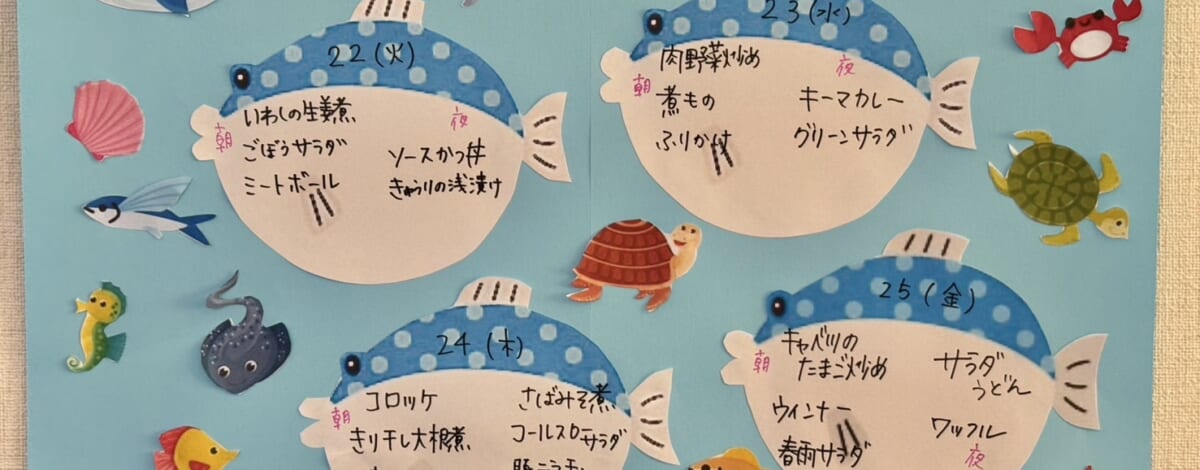 22(火)
朝
いわしの生姜煮
ごぼうサラダ
ミートボール
夜
ソースかつ丼
きゅうりの浅漬け
23(水)
朝
肉野菜炒め
煮もの
ふりかけ
夜
キーマカレー
グリーンサラダ
24(木)
朝
コロッケ
きり干し大根煮
さばみそ煮
コールスローサラダ
25(金)
朝
キャベツの
たまご炒め
ウィンナー
春雨サラダ
サラダ
うどん
ワッフル
夜